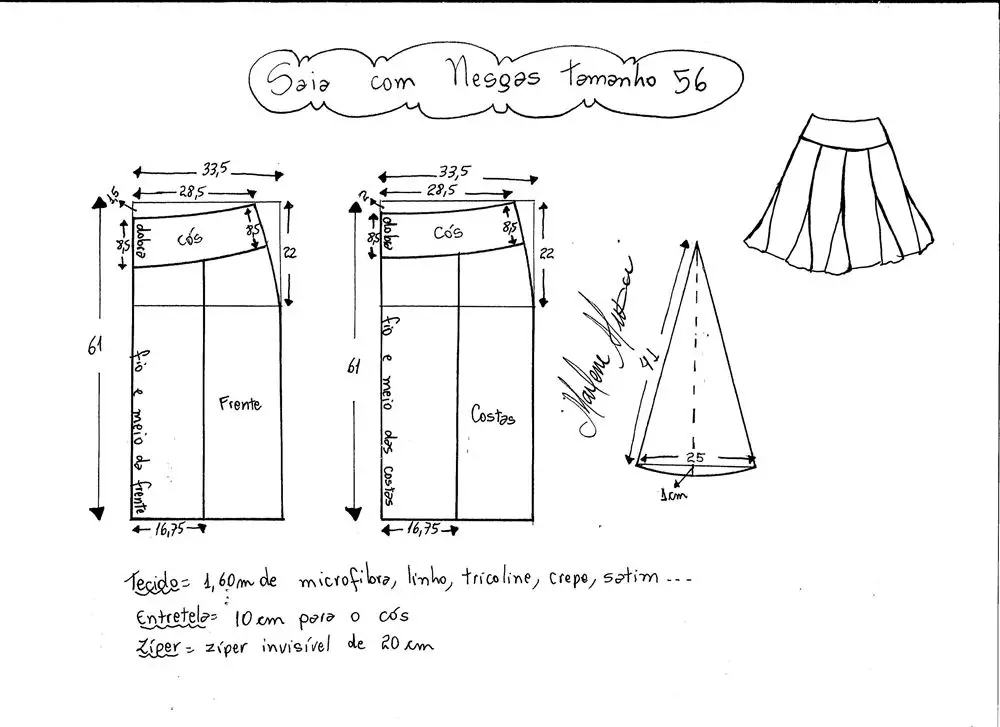 Saia com Nesgas tamanho 56
33,5
28,5
1,5
8,5
dobra
cós
8,5
22
61
fio e meio da frente
Frente
16,75
33,5
28,5
2
8,5
dobra
cós
8,5
22
61
fio e meio das costas
Costas
16,75
Marlene
41
25
1cm
Tecido= 1,60m de microfibra, linho, tricoline, crepe, satim ---
Entretela= 10 cm para o cós
Zíper = zíper invisível de 20 cm